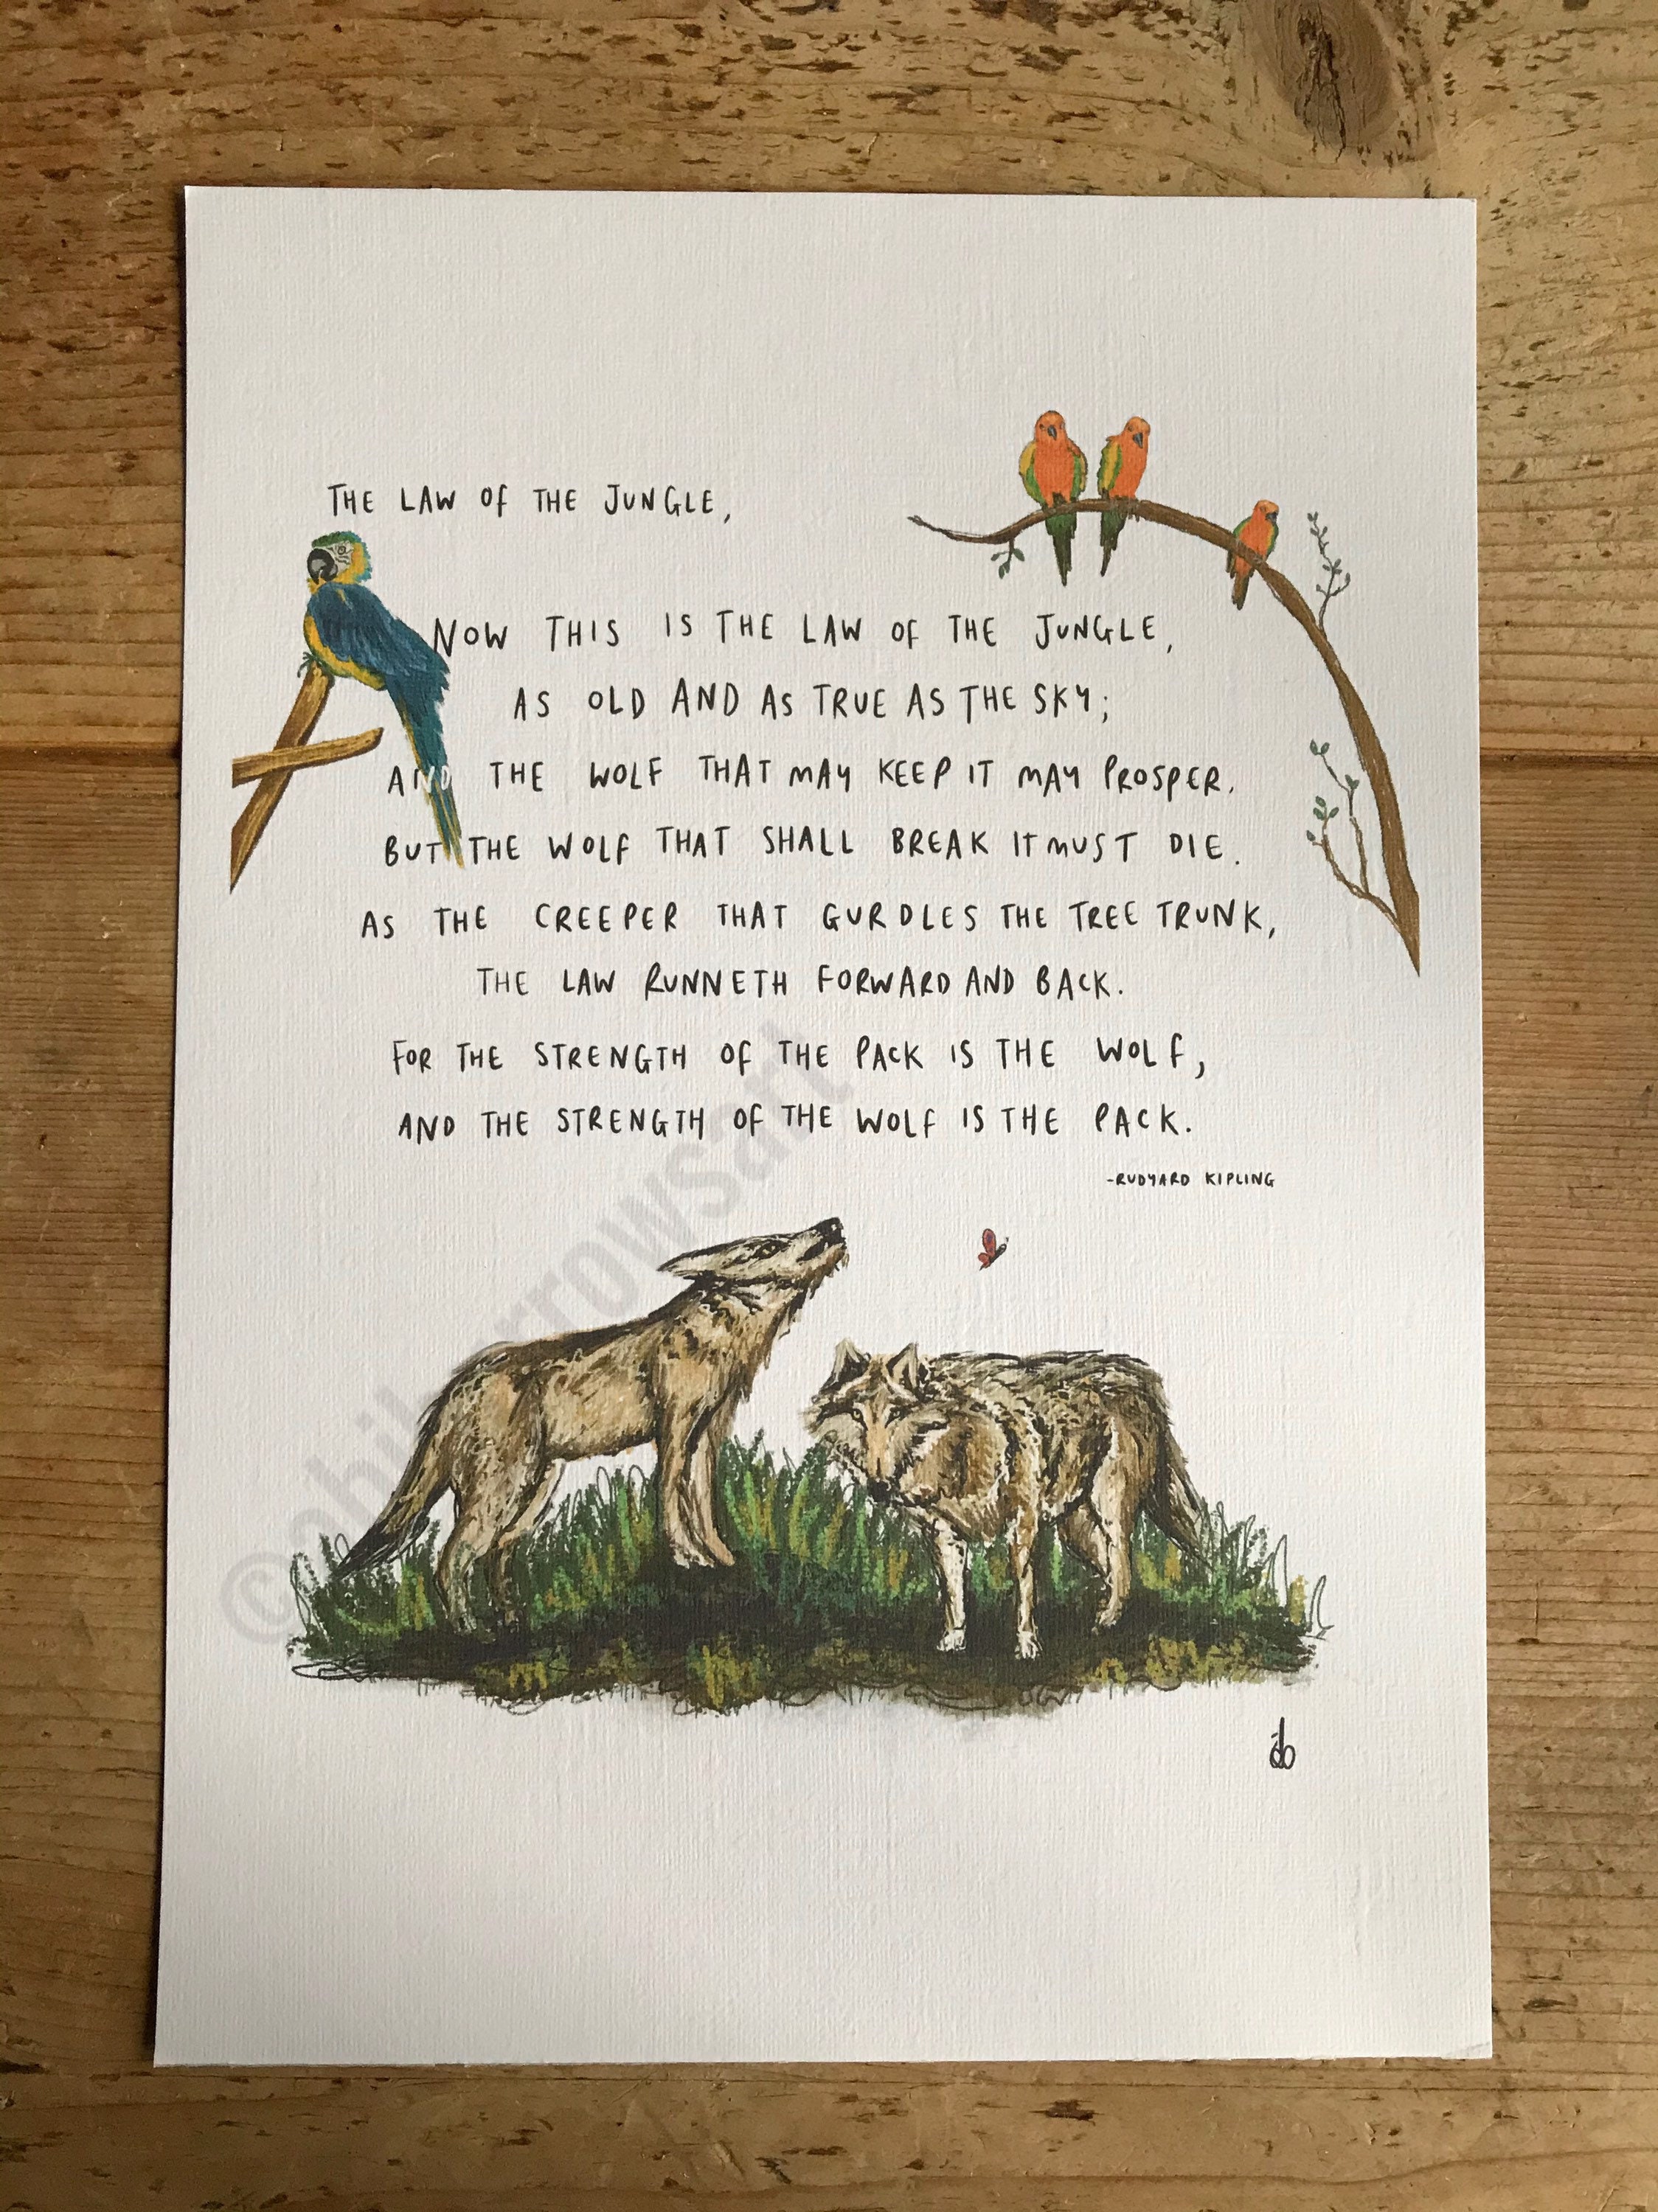 THE LAW OF THE JUNGLE,
NOW THIS IS THE LAW OF THE JUNGLE,
AS OLD AND AS TRUE AS THE SKY;
AND THE WOLF THAT MAY KEEP IT MAY PROSPER.
BUT THE WOLF THAT SHALL BREAK IT MUST DIE.
AS THE CREEPER THAT GURDLES THE TREE TRUNK,
THE LAW RUNNETH FORWARD AND BACK.
FOR THE STRENGTH OF THE PACK IS THE WOLF,
AND THE STRENGTH OF THE WOLF IS THE PACK.
-RUDYARD KIPLING
ab